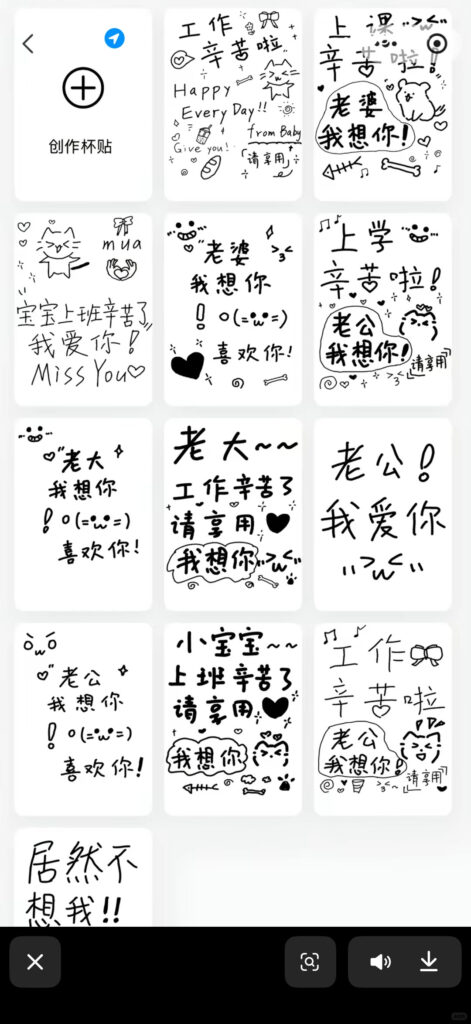 创作杯贴
工作
辛苦啦
Happy
Every Day!!
from Baby
Give you!
「请享用」
上课
辛苦啦!
老婆
我想你!
mua
宝宝上班辛苦了
我爱你!
Miss You♡
老婆
我想你
! o(=•ω•=)
喜欢你!
上学
辛苦啦!
老公
我想你!
「请享用」
老大
我想你
! o(=•ω•=)
喜欢你!
老大~~
工作辛苦了
请享用
我想你
老公!
我爱你
老公
我想你
! o(=•ω•=)
喜欢你!
小宝宝~~
上班辛苦了
请享用
我想你
工作
辛苦啦
老公
我想你!
「请享用」
居然不
想我!!